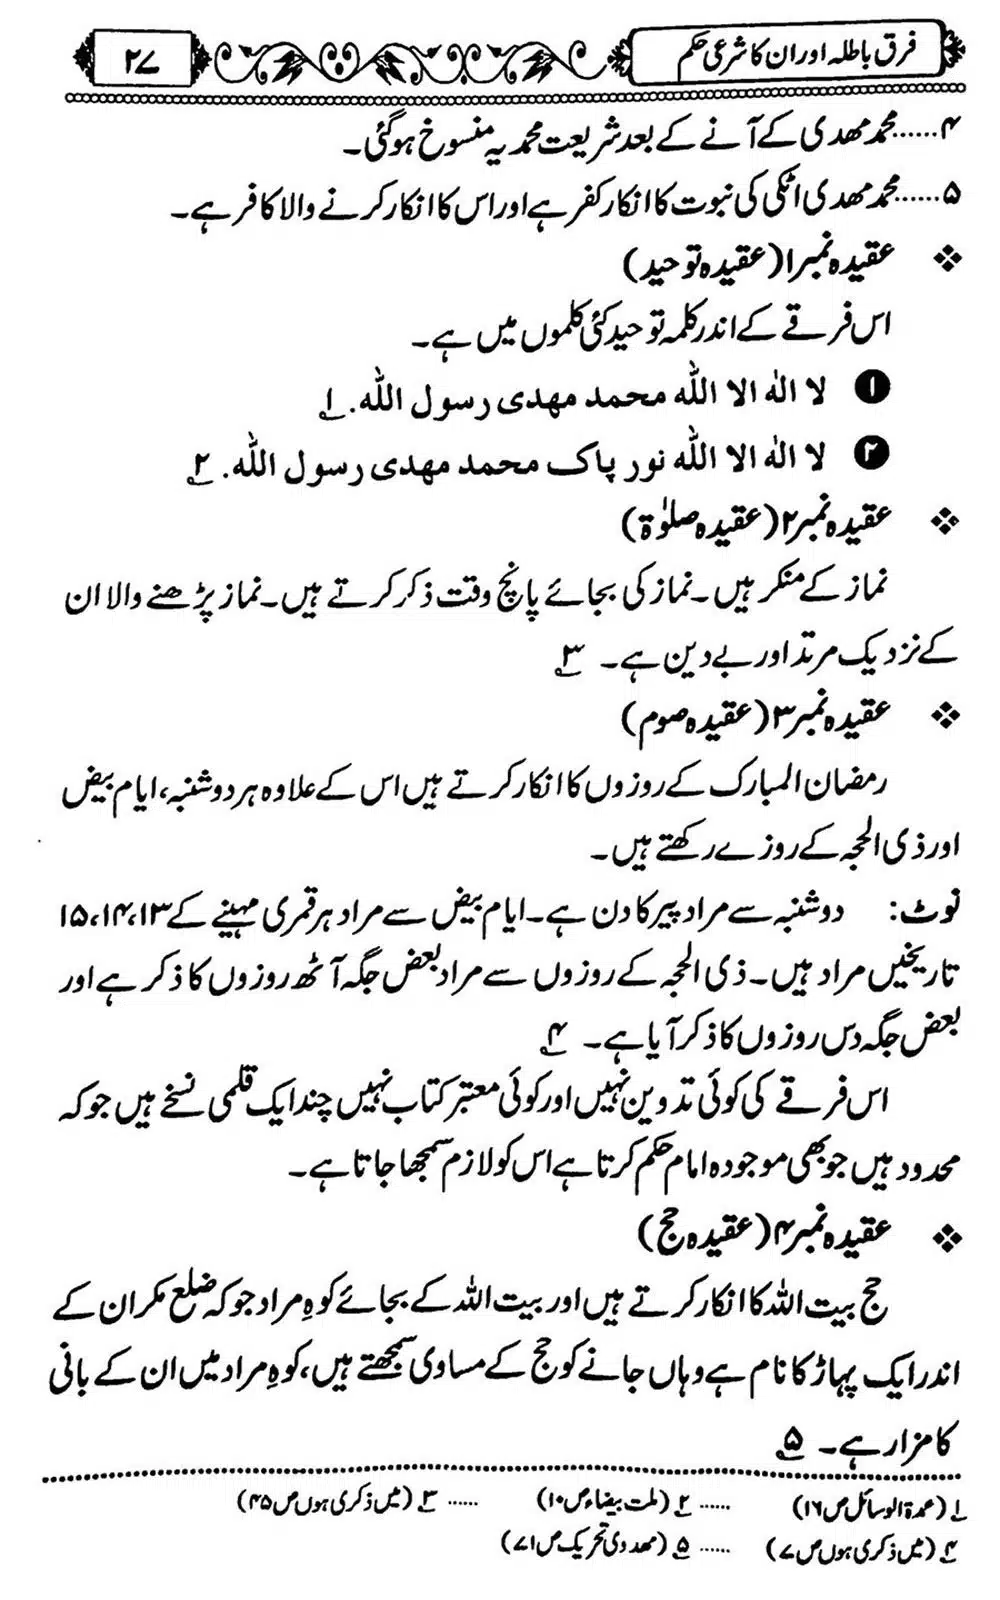 فرق باطلہ اور ان کا شرعی حکم
۲۷
۴......محمد مھدی کے آنے کے بعد شریعت محمدیہ منسوخ ہوگئی۔
۵......محمد مھدی اٹکی کی نبوت کا انکار کفر ہے اور اس کا انکار کرنے والا کافر ہے۔
عقیدہ نمبر۱ (عقیدہ توحید)
اس فرقے کے اندر کلمہ توحید کئی کلموں میں ہے۔
۱ لا الٰہ الا اللّٰہ محمد مھدی رسول اللّٰہ. ۱
۲ لا الٰہ الا اللّٰہ نور پاک محمد مھدی رسول اللّٰہ. ۲
عقیدہ نمبر۲ (عقیدہ صلوٰۃ)
نماز کے منکر ہیں۔ نماز کی بجائے پانچ وقت ذکر کرتے ہیں۔ نماز پڑھنے والا ان
کے نزدیک مرتد اور بے دین ہے۔ ۳
عقیدہ نمبر۳ (عقیدہ صوم)
رمضان المبارک کے روزوں کا انکار کرتے ہیں اس کے علاوہ ہر دوشنبہ، ایام بیض
اور ذی الحجہ کے روزے رکھتے ہیں۔
نوٹ: دوشنبہ سے مراد پیر کا دن ہے۔ ایام بیض سے مراد ہر قمری مہینے کے ۱۳،۱۴،۱۵
تاریخیں مراد ہیں۔ ذی الحجہ کے روزوں سے مراد بعض جگہ آٹھ روزوں کا ذکر ہے اور
بعض جگہ دس روزوں کا ذکر آیا ہے۔ ۴
اس فرقے کی کوئی تدوین نہیں اور کوئی معتبر کتاب نہیں چند ایک قلمی نسخے ہیں جو کہ
محدود ہیں جو بھی موجودہ امام حکم کرتا ہے اس کو لازم سمجھا جاتا ہے۔
عقیدہ نمبر۴ (عقیدہ حج)
حج بیت اللہ کا انکار کرتے ہیں اور بیت اللہ کے بجائے کوہِ مراد جو کہ ضلع مکران کے
اندر ایک پہاڑ کا نام ہے وہاں جانے کو حج کے مساوی سمجھتے ہیں، کوہِ مراد میں ان کے بانی
کا مزار ہے۔ ۵
۱ (عمدۃ الوسائل ص۱۶) ...... ۲ (ملت بیضاء ص۱۰) ...... ۳ (میں ذکری ہوں ص۴۵)
۴ (میں ذکری ہوں ص۷) ...... ۵ (مھدوی تحریک ص۷۱)